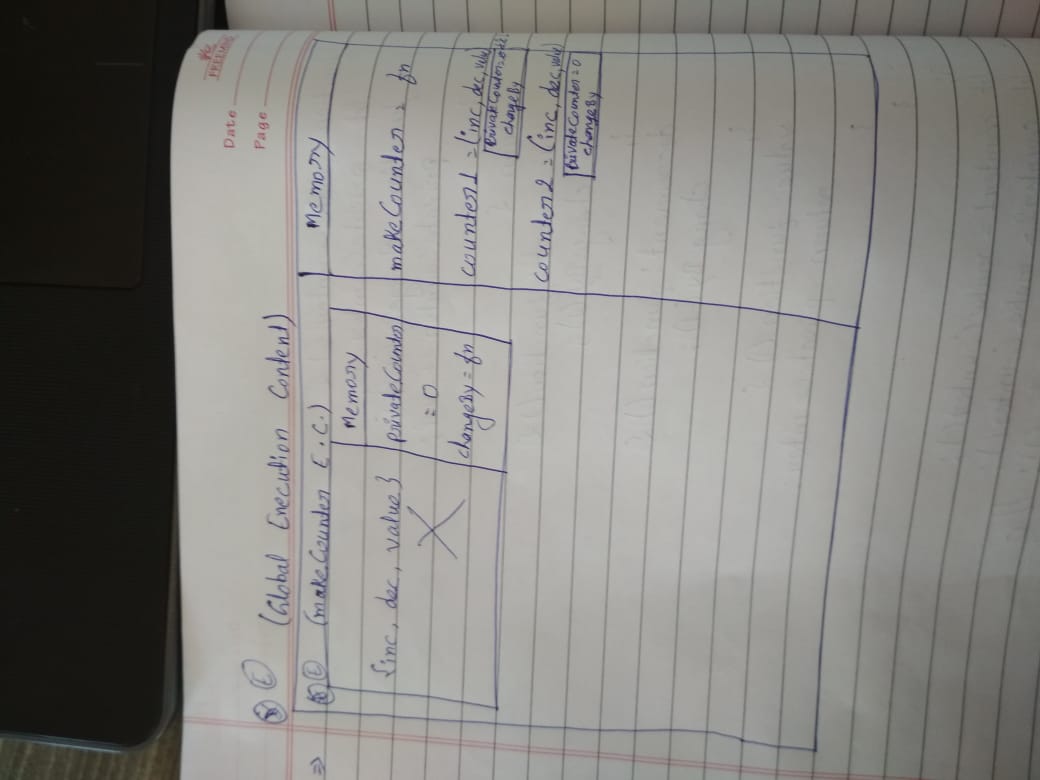 Date
Page
(Global Execution Context)
(makeCounter E.C.)
Memory
{inc, dec, value}
Memory
privateCounter
= 0
changeBy = fn
makeCounter = fn
counter1 = {inc, dec, value
privateCounter=
changeBy
counter2 = {inc, dec, value
privateCounter=0
changeBy